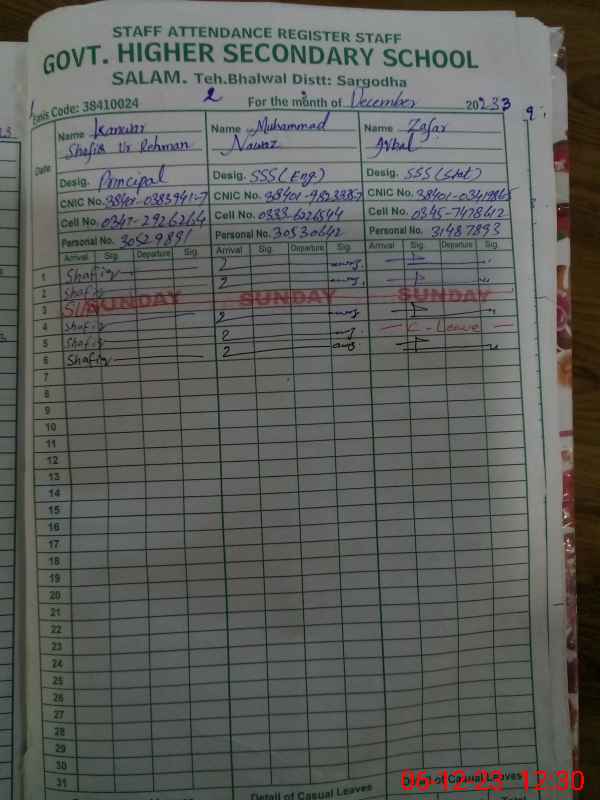 STAFF ATTENDANCE REGISTER STAFF
GOVT. HIGHER SECONDARY SCHOOL
SALAM. Teh.Bhalwal Distt: Sargodha
Emis Code: 38410024 2 For the month of December 2023
Name Name Muhammad Name Zafar
Shafiq Ur Rehman Nawaz Iqbal
Date
Desig. Principal Desig. SSS (Eng) Desig. SSS (Stat)
CNIC No. CNIC No. CNIC No.
Cell No. 0347-2926264 Cell No. Cell No. 0345-7478612
Personal No. 30529891 Personal No. 30530642 Personal No. 31487893
Arrival Sig. Departure Sig. Arrival Sig. Departure Sig. Arrival Sig. Departure Sig.
1 Shafiq 2
2 Shafiq 2
3 SUNDAY SUNDAY SUNDAY
4 Shafiq 2
5 Shafiq 2 C-Leave
6 Shafiq 2
7
8
9
10
11
12
13
14
15
16
17
18
19
20
21
22
23
24
25
26
27
28
29
30
31
Detail of Casual Leaves Detail of Casual Leaves
06-12-23 12:30